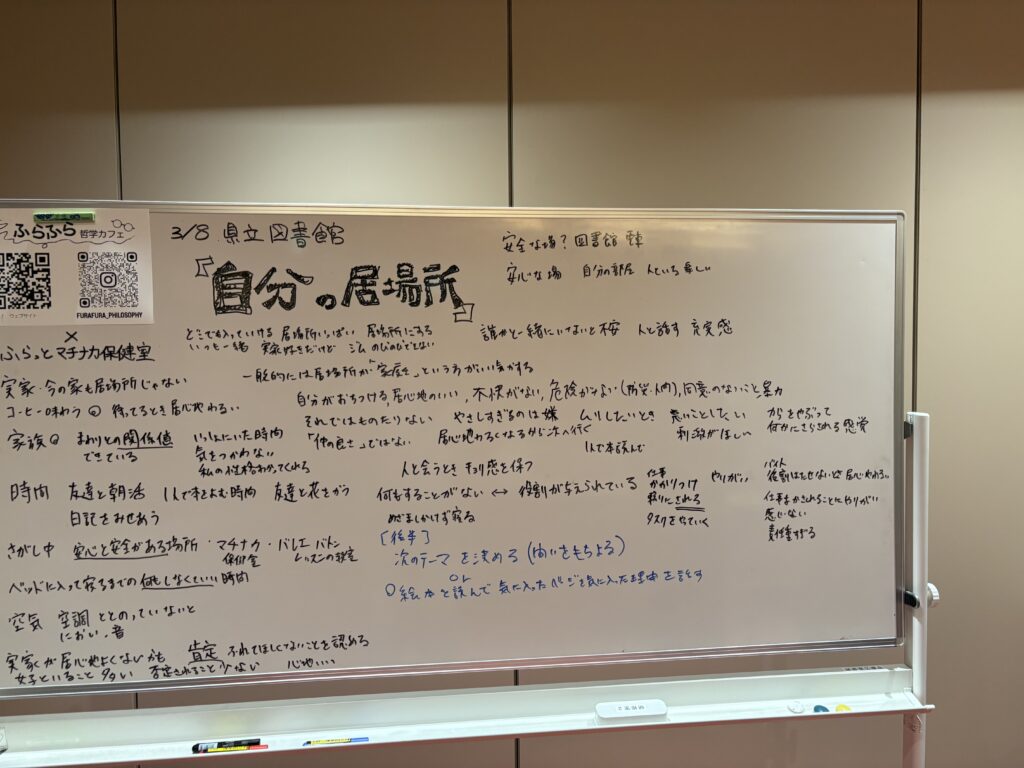 ふらふら 哲学カフェ
ウェブサイト
FURAFURA_PHILOSOPHY
×
ふらっと マチナカ保健室
3/8 県立図書館
『自分の居場所』
安全な場? 図書館
安心な場 自分の部屋 人といる
どこでも入っていける 居場所いっぱい 居場所にする
いつも一緒 実家好きだけど のびのびできない
誰かと一緒にいないと不安 人と話す 充実感
実家・今の家も居場所じゃない
一般的には居場所が「家庭」という方がいい気がする
コーヒー味わう 待ってるとき居心地わるい
自分がおちつける,居心地のいい,不快がない,危険が少ない(防災・人的),同意のないこと暴力
それではものたりない やさしすぎるのは嫌 ムリしたいとき 悪いことしたい
刺激がほしい
カラをやぶって
何かにさらされる感覚
家族 まわりとの関係値
できている
いっしょにいた時間
気をつかわない
私の性格わかってくれる
「仲の良さ」ではない 居心地わるくなるから次へ行く
1人で本読んで
人と会うとき キョリ感を保つ
時間 友達と朝活 1人で本をよむ時間 友達と花をかう
日記をみせあう
何もすることがない ↔ 役割が与えられている
めざましかけず寝る
仕事
かかりつけ
頼りにされる
タスクをやっていく
やりがい
バイト
役割はたせないと居心地わるい
仕事まかされることにやりがい
感じない
責任重すぎる
さがし中 安心と安全がある場所・マチナカ保健室・バレエ レッスンの教室・バトン
[後半]
次のテーマを決める(問いをもちよる)
or
○絵本を読んで気に入ったページと気に入った理由を話す
ベッドに入って寝るまでの何もしなくていい時間
空気 空調 ととのっていないと
におい・音
実家が居心地よくないかも
女子といること多い
肯定 ふれてほしくないことを認める
否定されること少ない 心地いい